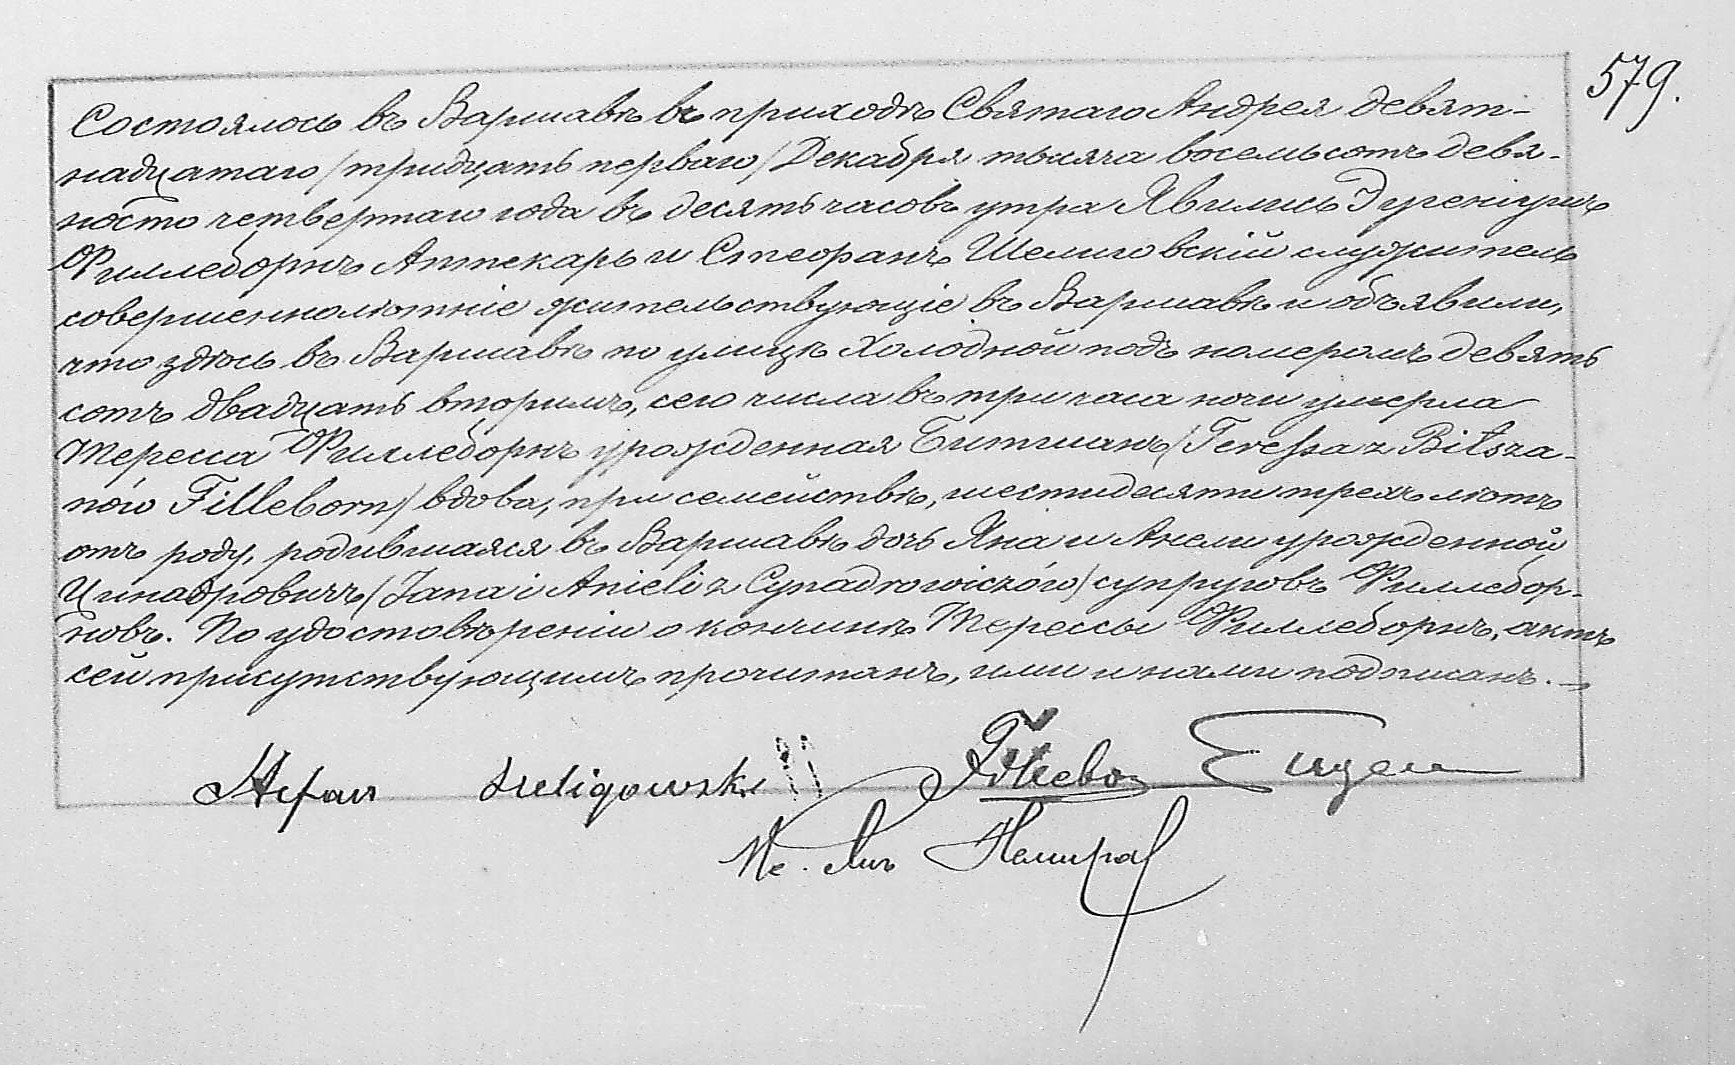 579.
Состоялось въ Варшавѣ въ приходѣ Святаго Андрея девят-
надцатаго /тридцать перваго/ Декабря тысяча восемьсотъ девя-
носто четвертаго года въ десять часовъ утра Явились Эугеніушъ
Филлеборнъ Аптекарь и Стефанъ Шелиговскій служитель
совершеннолѣтніе жительствующіе въ Варшавѣ и объявили,
что здѣсь въ Варшавѣ по улицѣ Холодной подъ номеромъ девять
сотъ двадцать вторымъ, сего числа въ три часа ночи умерла
Тересса Филлеборнъ урожденная Битшанъ /Teressa z Bitsza-
nów Filleborn/ вдова, при семействѣ, шестидесяти трехъ лѣтъ
отъ роду, родившаяся въ Варшавѣ дочь Яна и Анели урожденной
Цинадровичъ /Jana i Anieli z Cynadrowiczów/ супруговъ Филлебор-
новъ. По удостовѣреніи о кончинѣ Терессы Филлеборнъ, актъ
сей присутствующимъ прочитанъ, ими и нами подписанъ.
Stefan Szeligowski